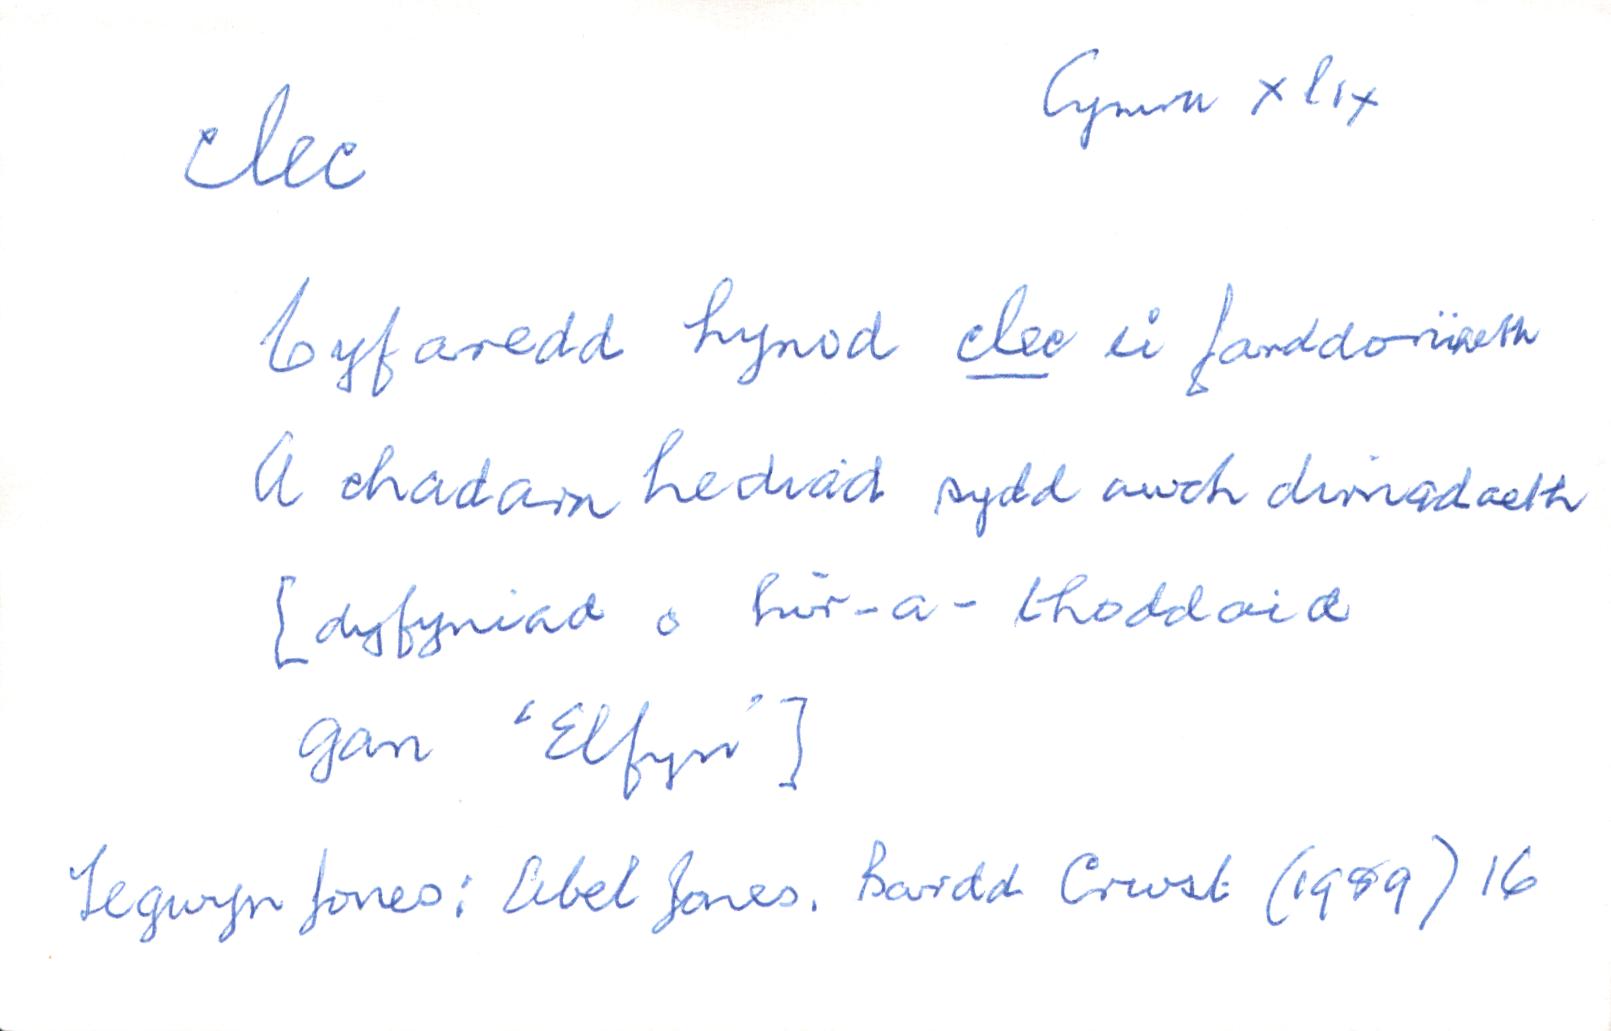 Cymru xlix
clec
Cyfaredd hynod clec ei farddoniaeth
A chadarn hediad sydd awch dirnadaeth
[dyfyniad o hir-a-thoddaid
gan 'Elfyn']
Tegwyn Jones: Abel Jones. Bardd Crwst (1989) 16